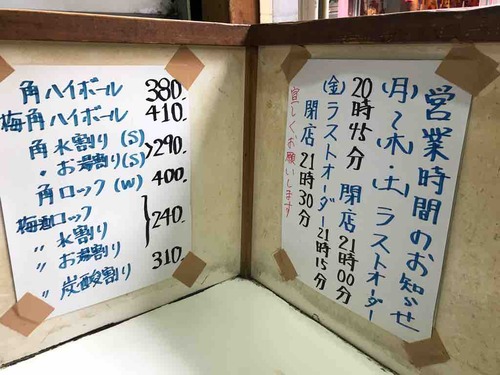 角ハイボール 380-
梅角ハイボール 410-
角水割り(S)
〃お湯割り(S) >290-
角ロック(W) 400-
梅酒ロック
〃 水割り } 240-
〃 お湯割り
〃 炭酸割り 310-
営業時間のお知らせ
(月)〜(木)・(土) ラストオーダー
20時45分 閉店21時00分
(金) ラストオーダー21時15分
閉店21時30分
宜しくお願いします